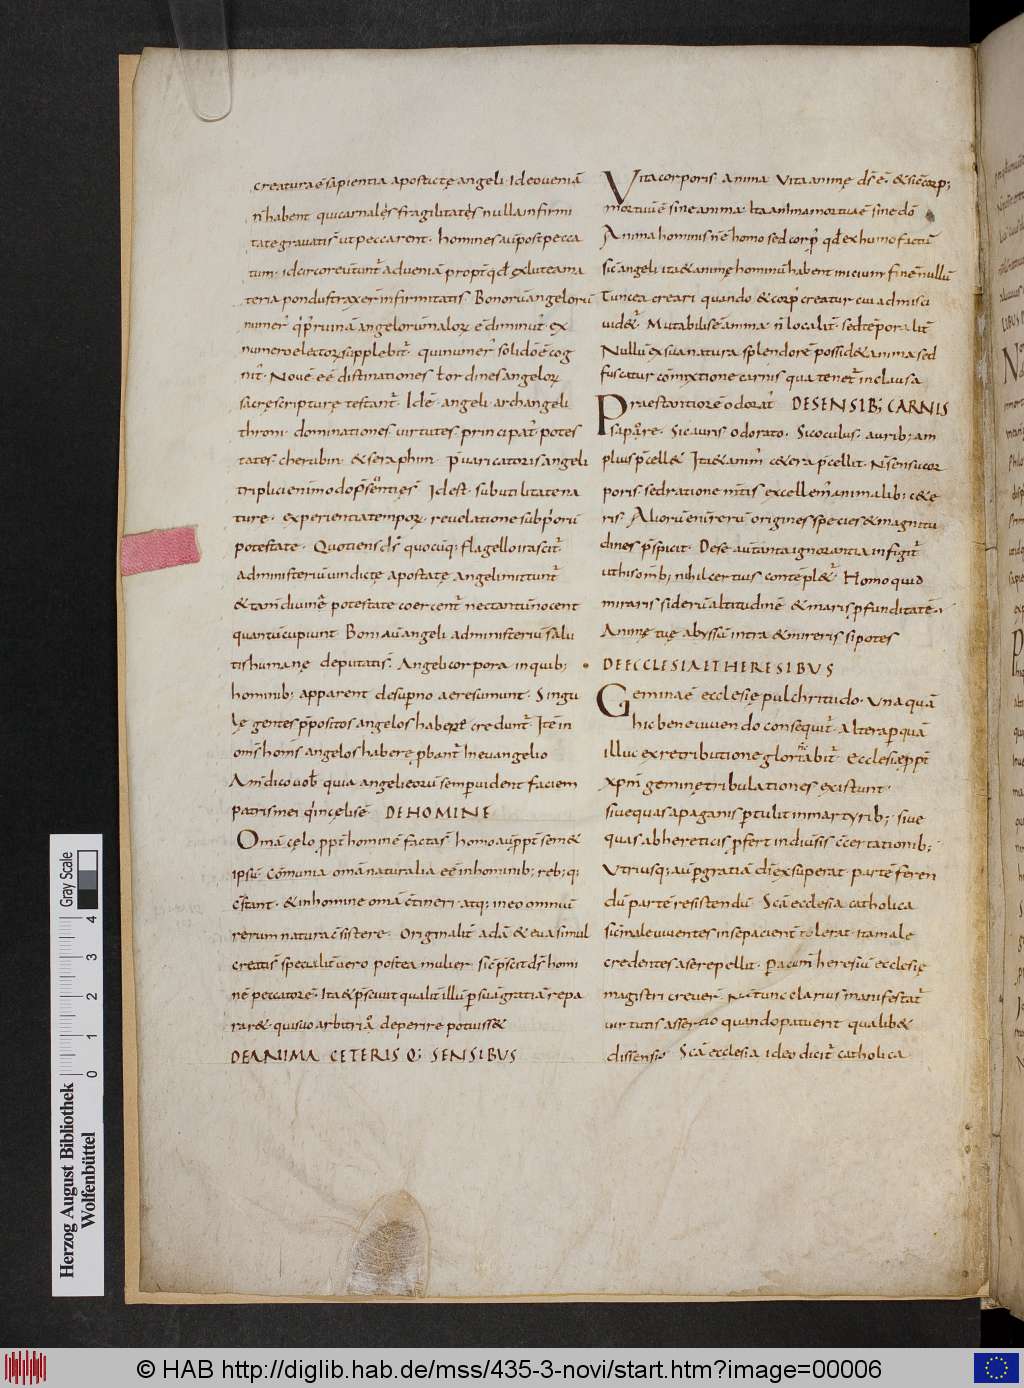 creatura ē sapientia apostictę angeli · Ideo ueniā
n̄ habent qui carnales fragilitates nulla infirmi
tate grauatis ut peccarent · homines aū post pecca
tum · idcirco reuertunt̄ ad ueniā
teria pondus Bonorū angelorū
numer̄
numero electorȝ supplebit̄ · qui numer̄ solido ē cog
nit̄ · Nouē eē distinationes ł ordines angelorȝ
sacrę scripturę testant̄ · Id ē · angeli · archangeli
throni · dominationes · uirtutes · principat̄ · potes
tates · cherubin · & seraphin · p̄uaricatoris angeli
triplici enī modo Id est · subutilitate na
ture · experientia temporȝ · reuelatione
potestate · Quotiens d̄s quocūq; flagello irascit̄
ad ministeriū uindictę apostatę angeli mittunt̄
& tam̄ diuinę potestate coercent̄ ne ctantū nocent
quantū cupiunt · Boni aū angeli ad ministeriū salu
tis humanę deputatis · Angeli corpora in quib;
hominib; apparent desup̄no aere sumunt · Singu
lę gentes p̄positos angelos habere credunt̄ · Itē in
om̄s homī̄s angelos habere p̄bant̄ In euangelio
Am̄ dico uob̄ quia angeli eorū semp̄ uident faciem
patris mei q̄ in cęlis ē DE HOMINE
Omā cęlo p̄pt̄ hominē facta s̄ homo aū p̄pt̄ sem&
ipsū Cōmunia omā naturalia eē in hominib; reb; q;
c̄stant · & in homine omā c̄tineri · atq; in eo omniū
rerum natura c̄sistere · Originalit̄ adā & eua simul
creati s̄ specialit̄ uero postea mulier · sic̄ p̄scit d̄s homi
nē peccatorē · Ita & p̄sciuit qualit̄ illū p̄ suā gratiā repa
rar& qui suo arbitri deperire potuiss&
DE ANIMA CETERIS Q; SENSIBUS
Vita corporis anima Vita animę d̄s ē · & sic̄ corp;
mortuū ē sine anima · Ita anima mortua ē sine dō
Anima hominis n̄ ē homo sed corp̄ qd̄ ex humo factū
sic̄ angeli ita & animę hominū habent inicium finē nullū
Tunc ea creari quando & corp̄ creatur cui admisci
uid&̄ · Mutabilis ē anima n̄ localit̄ · sed tēporalit̄
Nullū ex sua natura splendorē possid& anima sed
fuscatur cōmyxtione carnis qua tenet̄ inclusa
Praestantiorē odorat̄ DE SENSIB; CARNIS
sapore · Sic auris odorato · Sic oculus · aurib; am
plius p̄cell& Ita & anim̄ c&era p̄cellit · N̄ sensu cor
poris · sed ratione m̄tis excellem̄ animalib; c&e
ris Aliorū enī rerū origines species & magnitu
dines p̄spicit · De se aū tanta ignorantia infigit̄
ut his omīb; nihil certius contēpl&̄ · Homo quid
miraris siderū altitudinē & maris p̄funditatē ·
Animę tuę abyssū intra & mireris si potes
DE ECCLESIA ET HERESIBUS
Gemina ē ecclesię pulchritudo · Una quā
hic bene uiuendo consequit̄ · Altera p̄ quā
illuc ex retributione glorificabit̄ Ecclesię p̄pt̄
xp̄m geminę tribulationes existunt ·
siue quas a paganis p̄tulit in martyrib; · siue
quas ab hereticis p̄fert in diuīsis c̄certationib;
Utrūsq; aū p̄ gratiā d̄i exsuperat · partē feren
dū partē resistendū · Scā ecclesia catholica
sic̄ male uiuentes in se pacient̄ tolerat · ita male
credentes a se repellit · heresiū ecclesię
magistri creuer̄ · Nā tunc clarius manifestat̄
uirtutis assertio quando patuerit qualib&
dissensio · Scā ecclesia ideo dicit̄ catholica
Herzog August Bibliothek
Wolfenbüttel
Gray Scale
0 1 2 3 4
© HAB http://diglib.hab.de/mss/435-3-novi/start.htm?image=00006